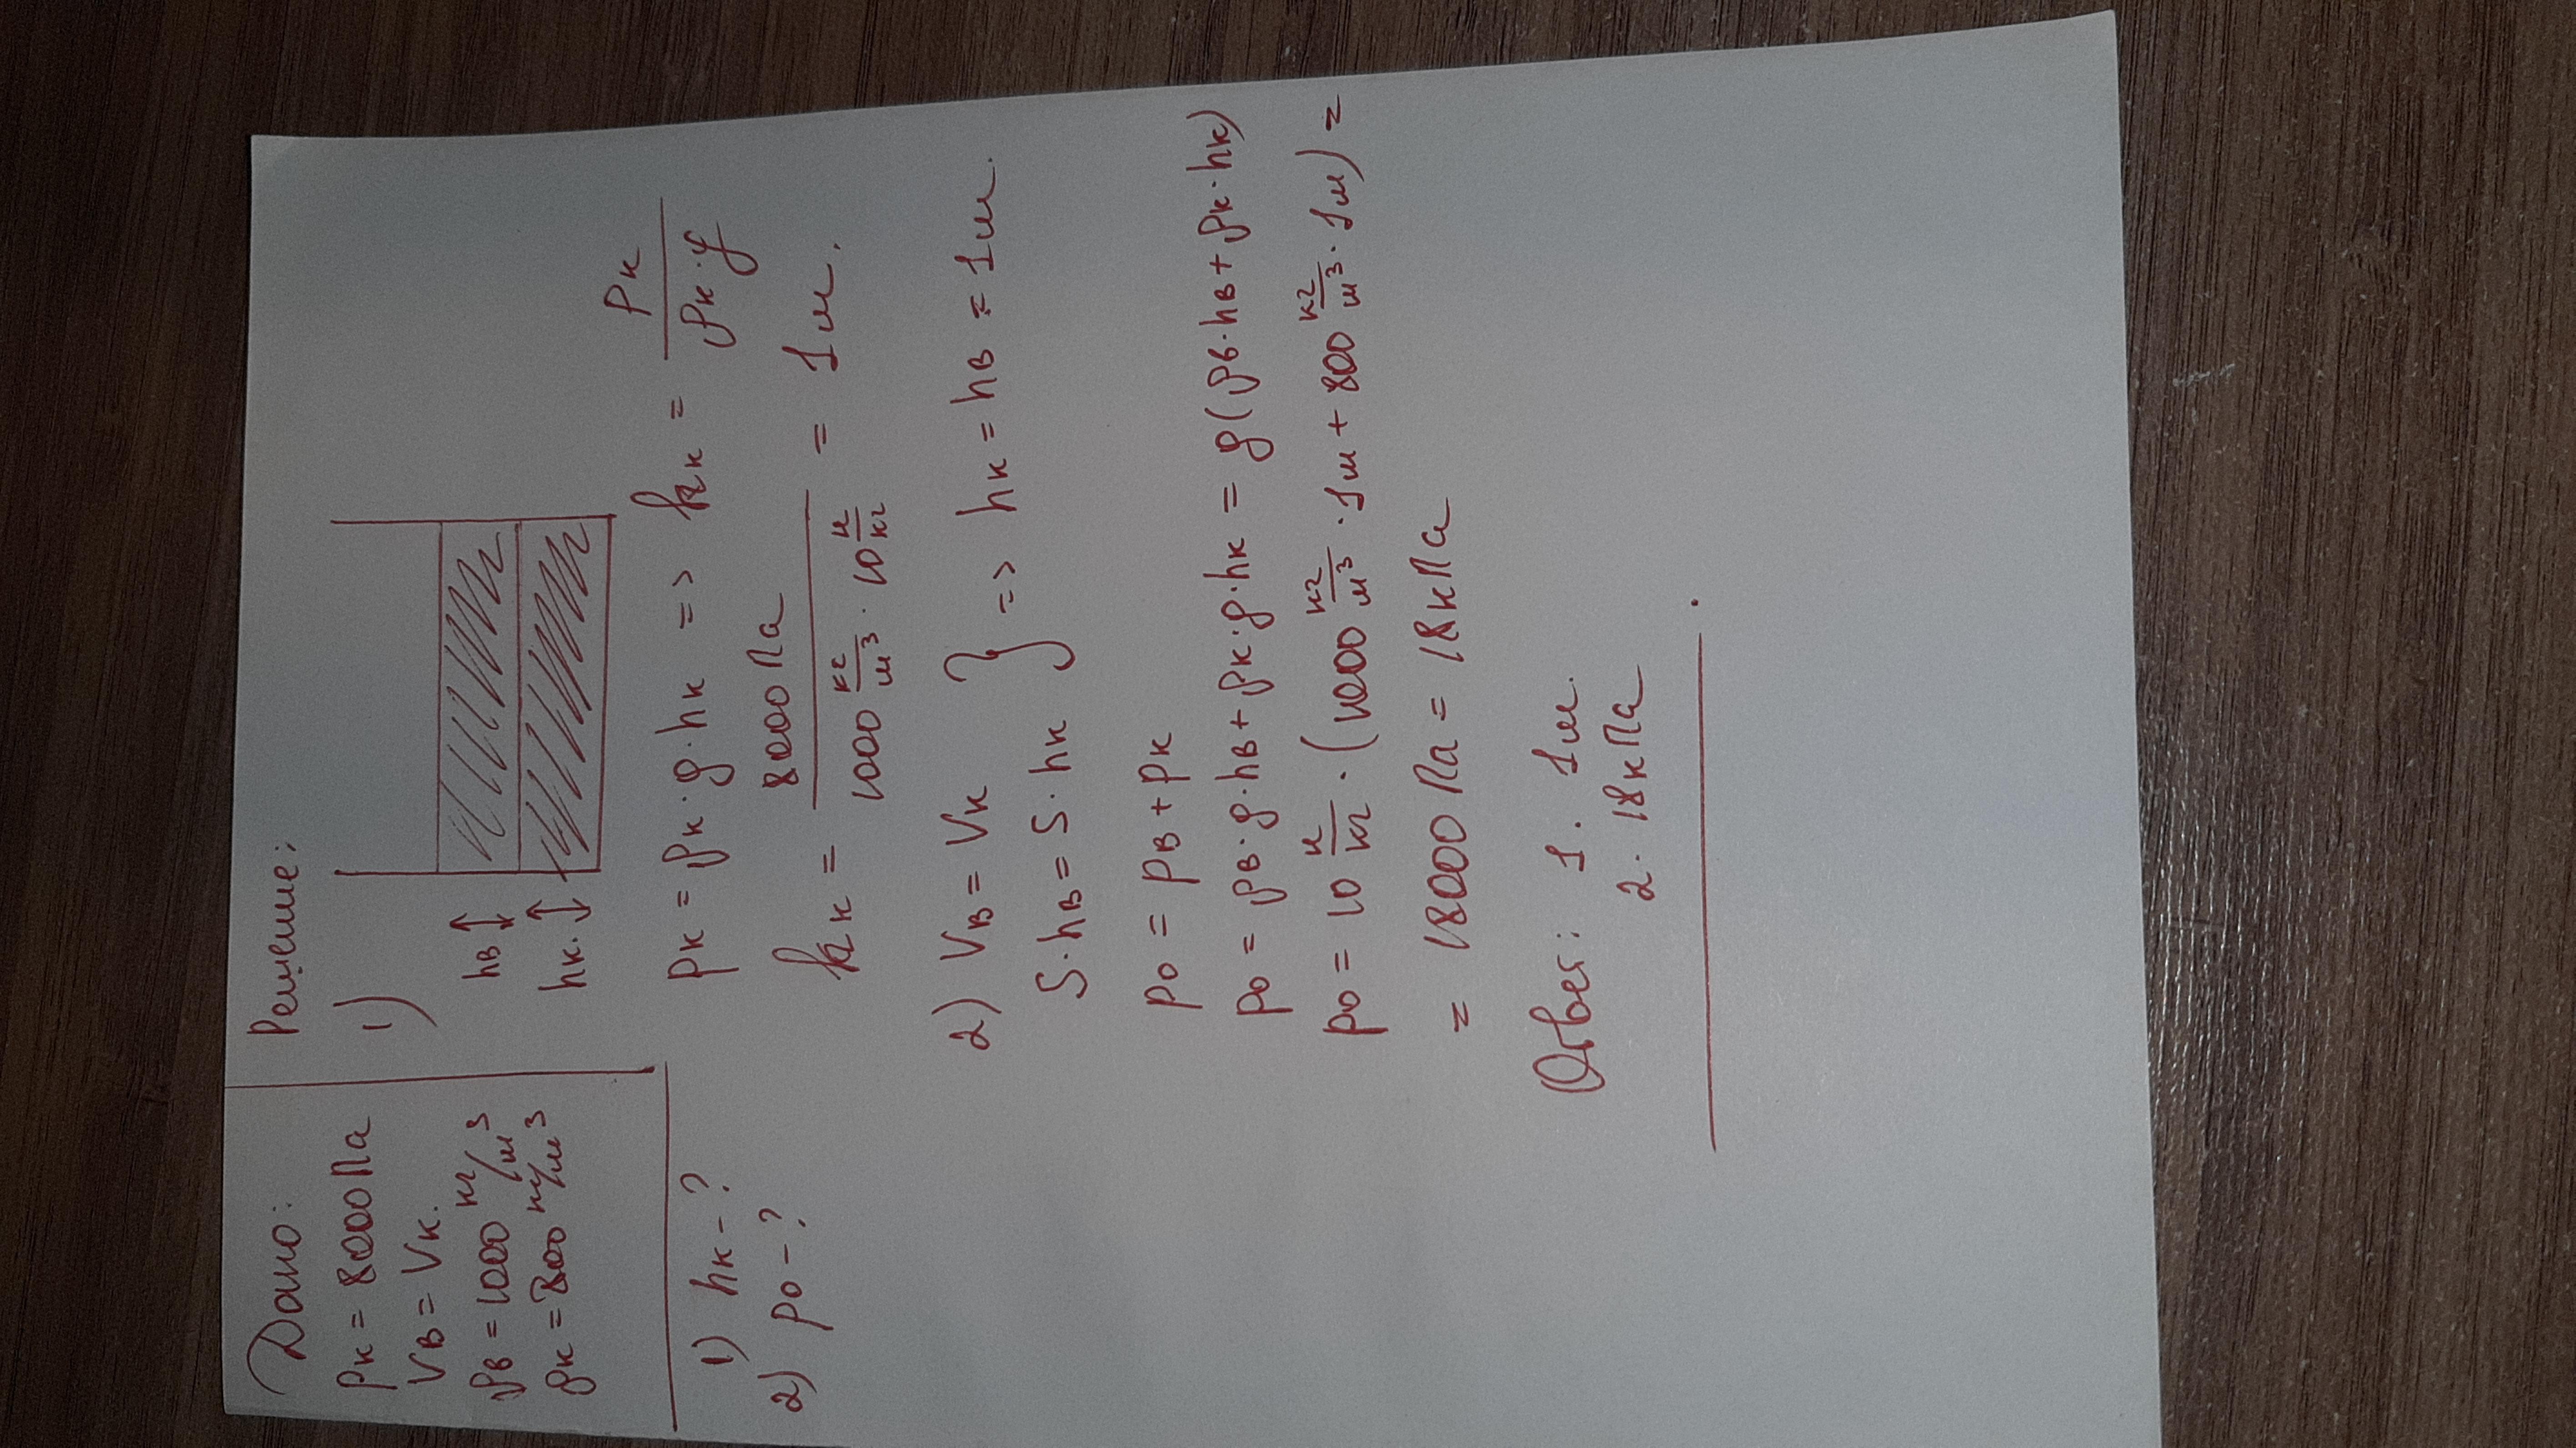 Дано:
Pк = 8000 Па
Vв = Vк.
ρв = 1000 кг/м³
ρк = 800 кг/м³
1) hк - ?
2) p0 - ?
Решение:
1)
hв ↕
hк. ↕
Pк = ρк · g · hк => hк = Pк / (ρк · g)
hк = 8000 Па / (1000 кг/м³ · 10 н/кг) = 1 м.
2) Vв = Vк
S · hв = S · hк } => hк = hв = 1 м.
p0 = pв + pк
p0 = ρв · g · hв + ρк · g · hк = g (ρв · hв + ρк · hк)
p0 = 10 н/кг · (1000 кг/м³ · 1м + 800 кг/м³ · 1м) =
= 18000 Па = 18 кПа
Ответ: 1. 1 м.
2. 18 кПа